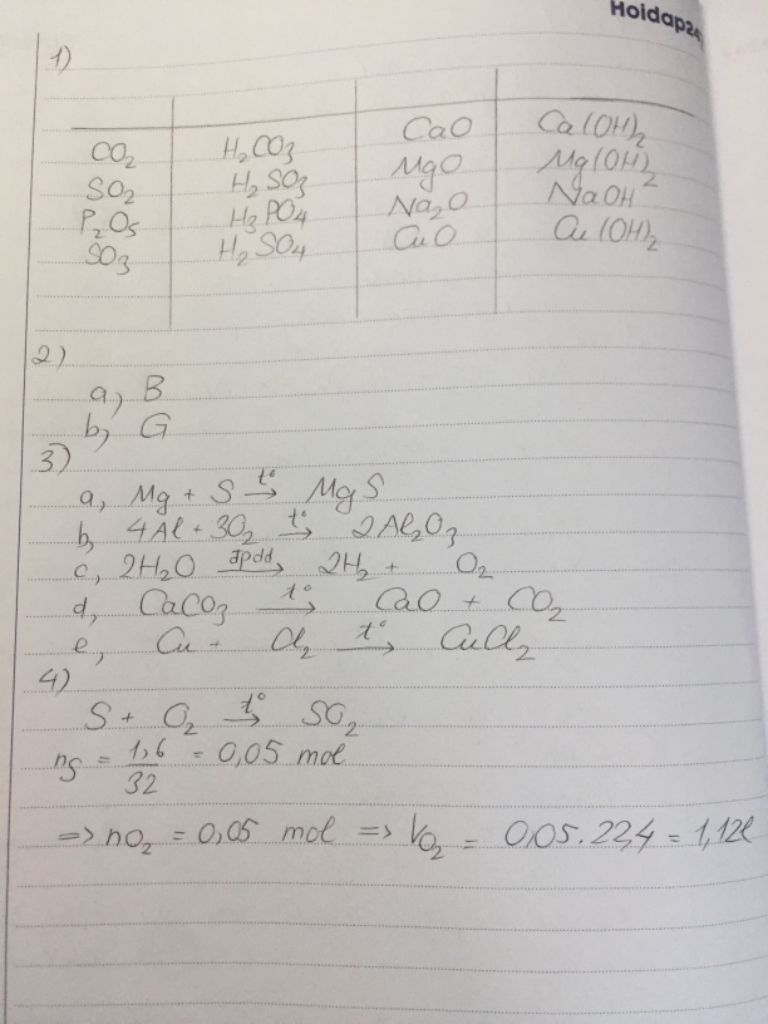 Hoidap24
1)
CO₂ H₂CO₃ CaO Ca(OH)₂
SO₂ H₂SO₃ MgO Mg(OH)₂
P₂O₅ H₃PO₄ Na₂O NaOH
SO₃ H₂SO₄ CuO Cu(OH)₂
2)
a, B
b, G
3)
a, Mg + S t°→ MgS
b, 4Al + 3O₂ t°→ 2Al₂O₃
c, 2H₂O đpdd→ 2H₂ + O₂
d, CaCO₃ t°→ CaO + CO₂
e, Cu + Cl₂ t°→ CuCl₂
4)
S + O₂ t°→ SO₂
nS = 1,6/32 = 0,05 mol
=> nO₂ = 0,05 mol => VO₂ = 0,05.22,4 = 1,12l